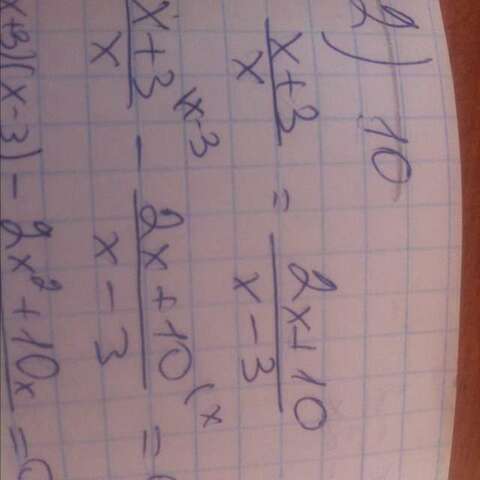 2) 10
x+3/x = 2x+10/x-3
x+3/x \x-3 - 2x+10/x-3 (x =
x+3)(x-3) - 2x²+10x =